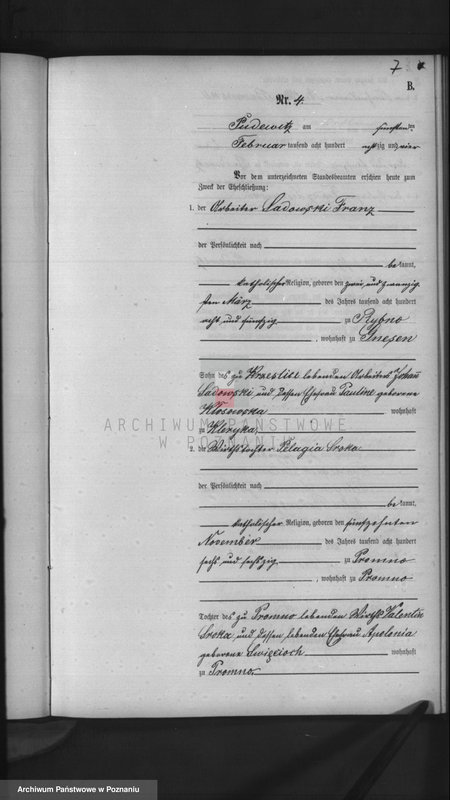 7
B.
Nr. 4.
Pudewitz am fünften
Februar tausend acht hundert achtzig und vier
Vor dem unterzeichneten Standesbeamten erschien heute zum
Zweck der Eheschließung:
1. der Arbeiter Sadowski Franz
der Persönlichkeit nach
bekannt,
katholischer Religion, geboren den zwei und zwanzig
sten März des Jahres tausend acht hundert
acht und fünfzig zu Rybno
, wohnhaft zu Gnesen
Sohn des zu lebenden Arbeiters Johann
Sadowski und dessen Ehefrau Pauline geborene
Klosowska wohnhaft
zu Kleryka
2. die Wirthstochter Pelagia Sroka
der Persönlichkeit nach
bekannt,
katholischer Religion, geboren den fünfzehnten
November des Jahres tausend acht hundert
sechs und sechszig zu Promno
, wohnhaft zu Promno
Tochter des zu Promno lebenden Wirths Valentin
Sroka und dessen lebenden Ehefrau Apolonia
geborene wohnhaft
zu Promno.
ARCHIWUM PAŃSTWOWE
W POZNANIU
Archiwum Państwowe w Poznaniu